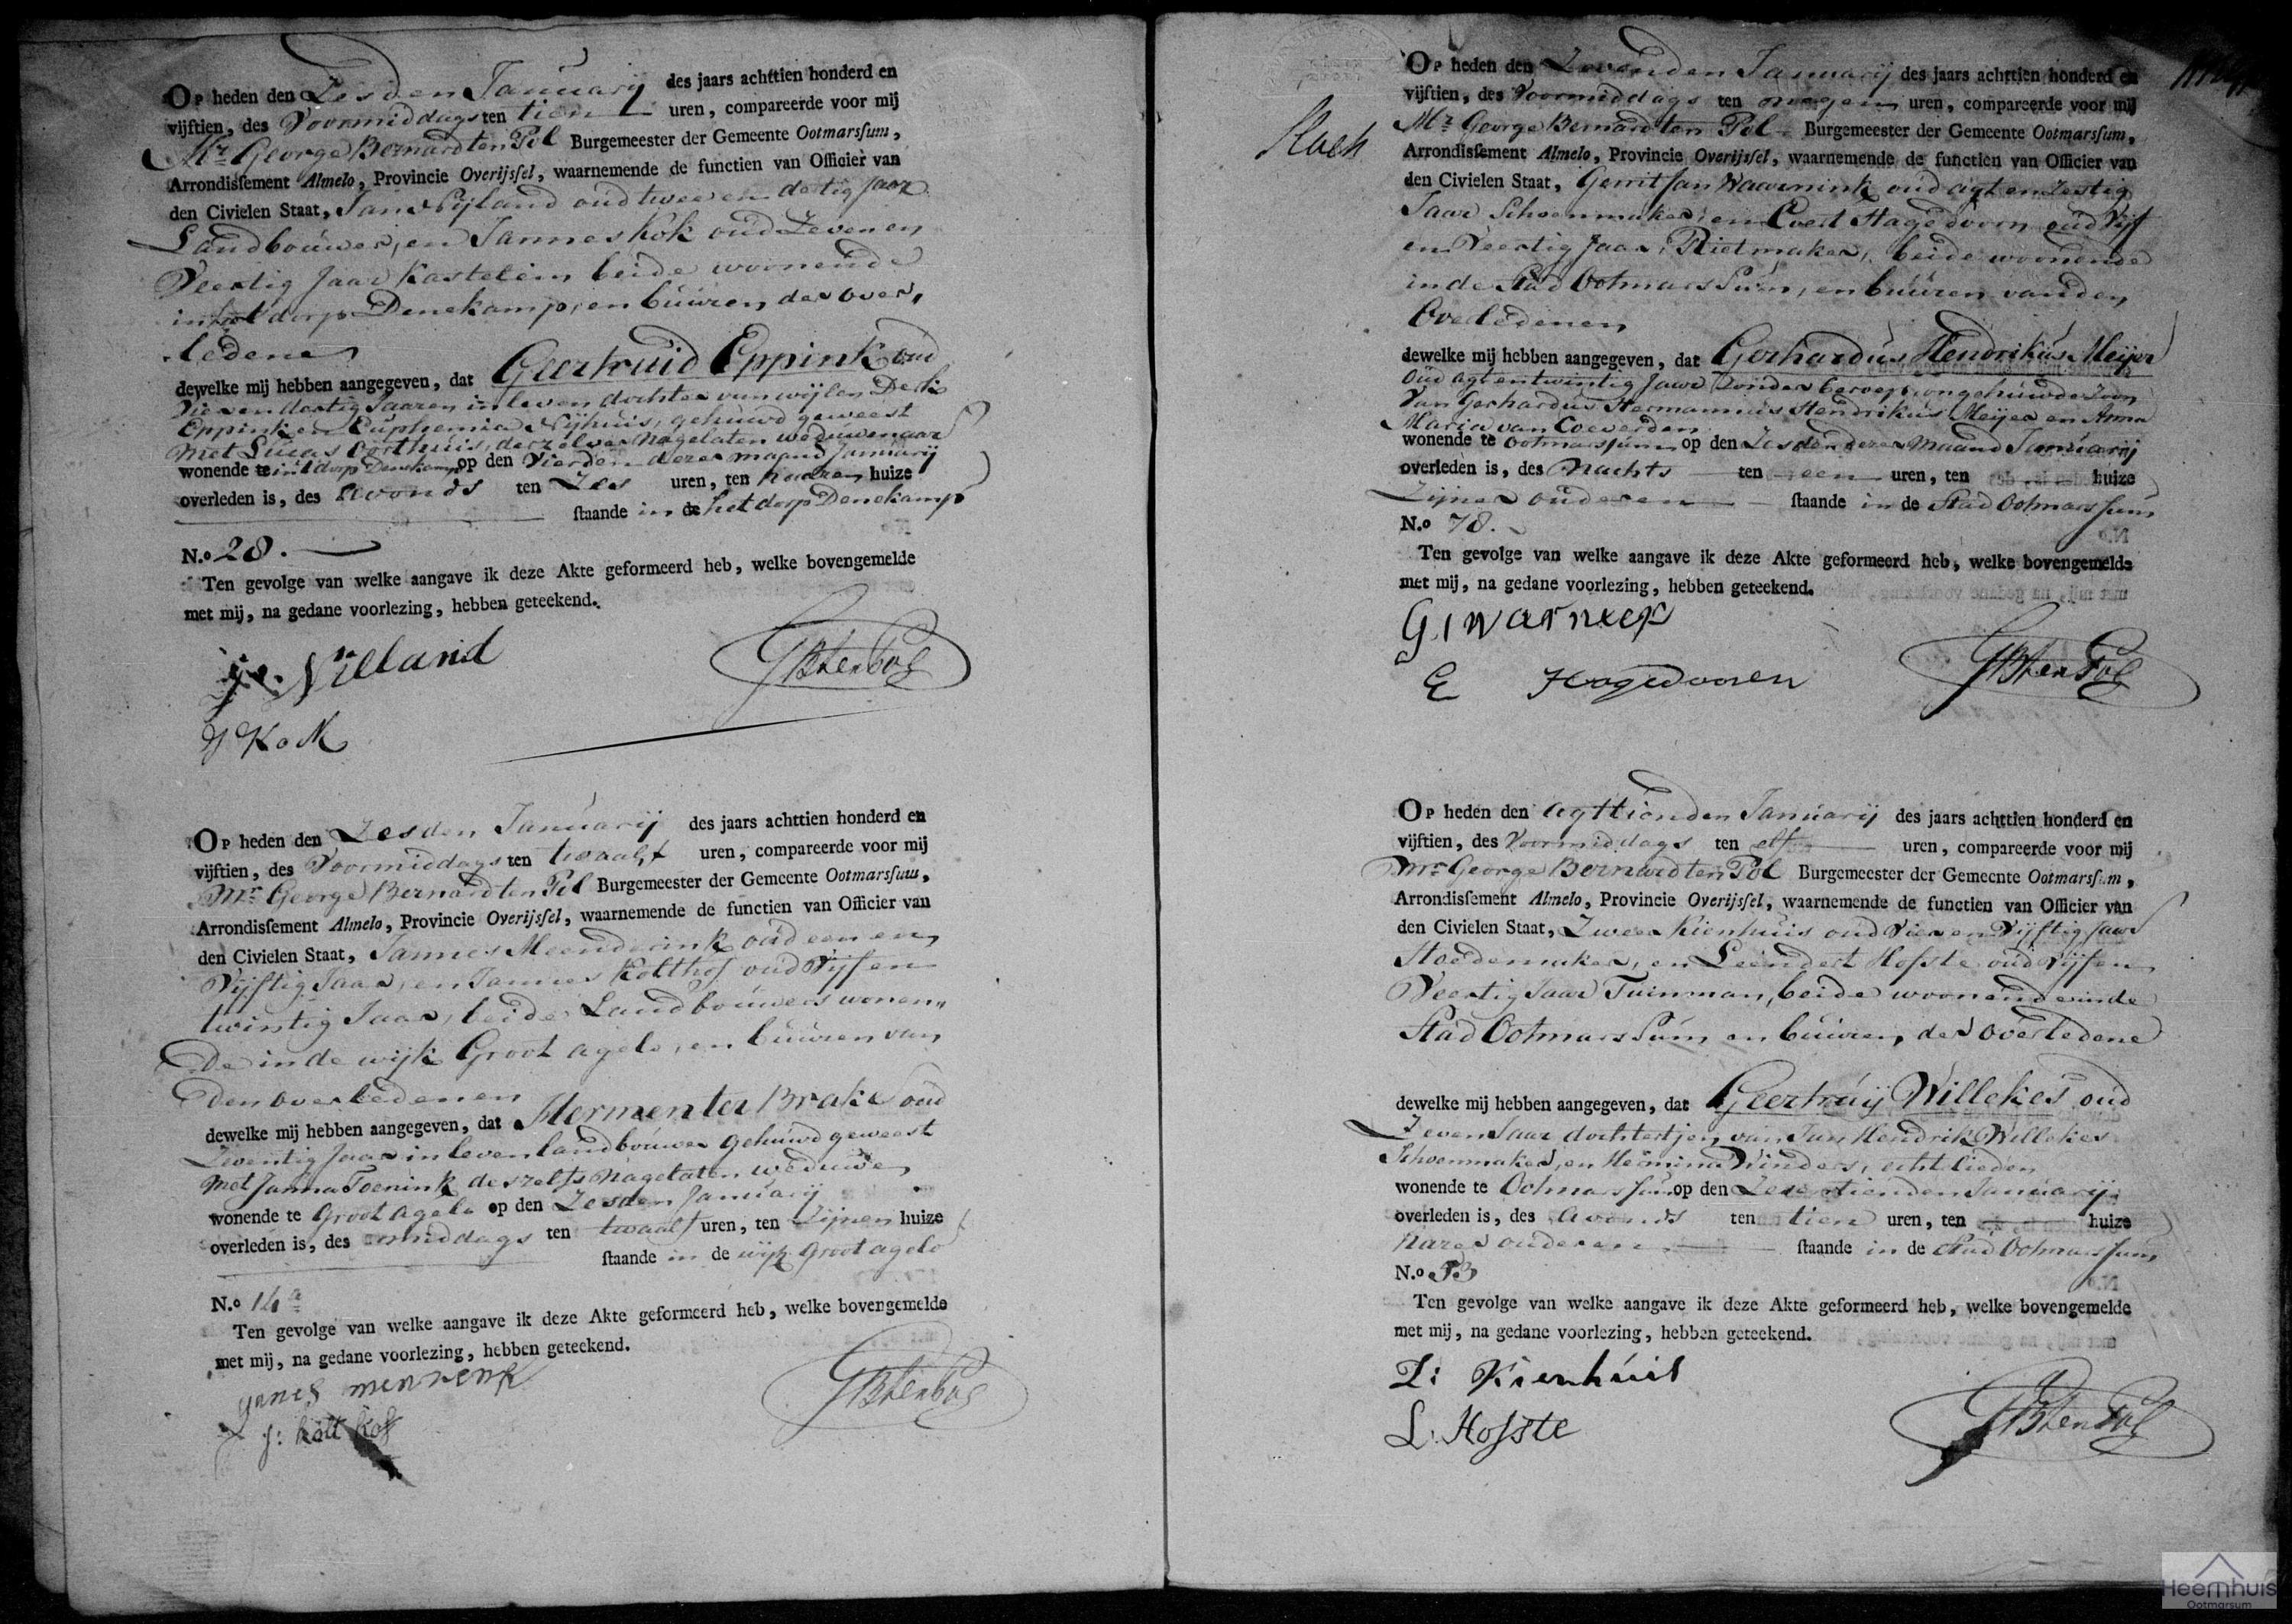 Op heden den Zesden Januarij des jaars achttien honderd en
vijftien, des Voormiddags ten tien uren, compareerde voor mij
Mr. George Bernard ten Pol Burgemeester der Gemeente Ootmarssum,
Arrondissement Almelo, Provincie Overijssel, waarnemende de functien van Officier van
den Civielen Staat, Jan Nijland oud twee en dertig Jaar
Landbouwer, en Jannes Kok oud Zeven en
Veertig Jaar Kastelein, beide woonende
in het dorp Denekamp, en buuren der over,
ledene
dewelke mij hebben aangegeven, dat Geertruid Eppink oud
Vier en dertig Jaaren in leven dochter van wijlen Derk
Eppink en Euphemia Nijhuis, gehuwd geweest
met Lucas Oosthuis, derzelver nagelaten weduwenaar
wonende te in 't dorp Denekamp op den Vierden dezer maand Januarij
overleden is, des avonds ten Zes uren, ten haaren huize
staande in de het dorp Denekamp
N.o 28.
Ten gevolge van welke aangave ik deze Akte geformeerd heb, welke bovengemelde
met mij, na gedane voorlezing, hebben geteekend.
Nilland
GB ten Pol
J Kok
Op heden den Zesden Januarij des jaars achttien honderd en
vijftien, des Voormiddags ten twaalf uren, compareerde voor mij
Mr. George Bernard ten Pol Burgemeester der Gemeente Ootmarssum,
Arrondissement Almelo, Provincie Overijssel, waarnemende de functien van Officier van
den Civielen Staat, Jannes Meenderink oud een en
Vijftig Jaar, en Jannes Kolthof oud Vijf en
twintig Jaar, beide Landbouwers wonen"
De in de wijk Groot agelo, en buuren van
Den overledenen
dewelke mij hebben aangegeven, dat Hermen ter Brake oud
Zeventig Jaar in leven landbouwer gehuwd geweest
met Janna Toenink deszelfs nagelaten weduwe
wonende te Groot agelo op den Zesden Januarij
overleden is, des middags ten twaalf uren, ten Zijnen huize
staande in de wijk Groot agelo
N.o 14a
Ten gevolge van welke aangave ik deze Akte geformeerd heb, welke bovengemelde
met mij, na gedane voorlezing, hebben geteekend.
GB ten Pol
J: kolt hof
Op heden den Zevenden Januarij des jaars achttien honderd en
vijftien, des Voormiddags ten negen uren, compareerde voor mij
Mr. George Bernard ten Pol Burgemeester der Gemeente Ootmarssum,
Arrondissement Almelo, Provincie Overijssel, waarnemende de functien van Officier van
den Civielen Staat, Gerrit Jan Waarnink oud agt en Zestig
Jaar Schoenmaker, en Evert Hagedoorn oud Vijf
en Veertig Jaar, Rietmaker, beide woonende
in de Stad Ootmarssum, en buuren van den
Overledenen
dewelke mij hebben aangegeven, dat Gerhardus Hendrikus Meijer
oud agt en twintig Jaar zonder beroep, ongehuwde Zoon
Van Gerhardus Hermannus Hendrikus Meijer en Anna
Maria van Coeverden
wonende te Ootmarssum op den Zesden dezer maand Januarij
overleden is, des Nachts ten een uren, ten huize
Zijner ouderen staande in de Stad Ootmarssum
N.o 78.
Ten gevolge van welke aangave ik deze Akte geformeerd heb, welke bovengemelde
met mij, na gedane voorlezing, hebben geteekend.
E Hagedooren
GB ten Pol
Op heden den agttienden Januarij des jaars achttien honderd en
vijftien, des Voormiddags ten elf uren, compareerde voor mij
Mr. George Bernard ten Pol Burgemeester der Gemeente Ootmarssum,
Arrondissement Almelo, Provincie Overijssel, waarnemende de functien van Officier van
den Civielen Staat, Zweer Kienhuis oud Vier en Vijftig Jaar
Hoedemaker, en Leendert Hofste oud Vijf en
Veertig Jaar Tuinman, beide woonende in de
Stad Ootmarssum en buuren, der Overledene
dewelke mij hebben aangegeven, dat Geertruij Willekes oud
Zeven Jaar dochtertjen van Jan Hendrik Willekes
Schoenmaker, en Hermina Ninders, echtlieden
wonende te Ootmarssum op den Zestienden Januarij
overleden is, des avonds ten tien uren, ten huize
harer ouderen staande in de Stad Ootmarssum
N.o 53
Ten gevolge van welke aangave ik deze Akte geformeerd heb, welke bovengemelde
met mij, na gedane voorlezing, hebben geteekend.
Z: Kienhuis
L. Hofste
GB ten Pol
Heemhuis
Ootmarsum